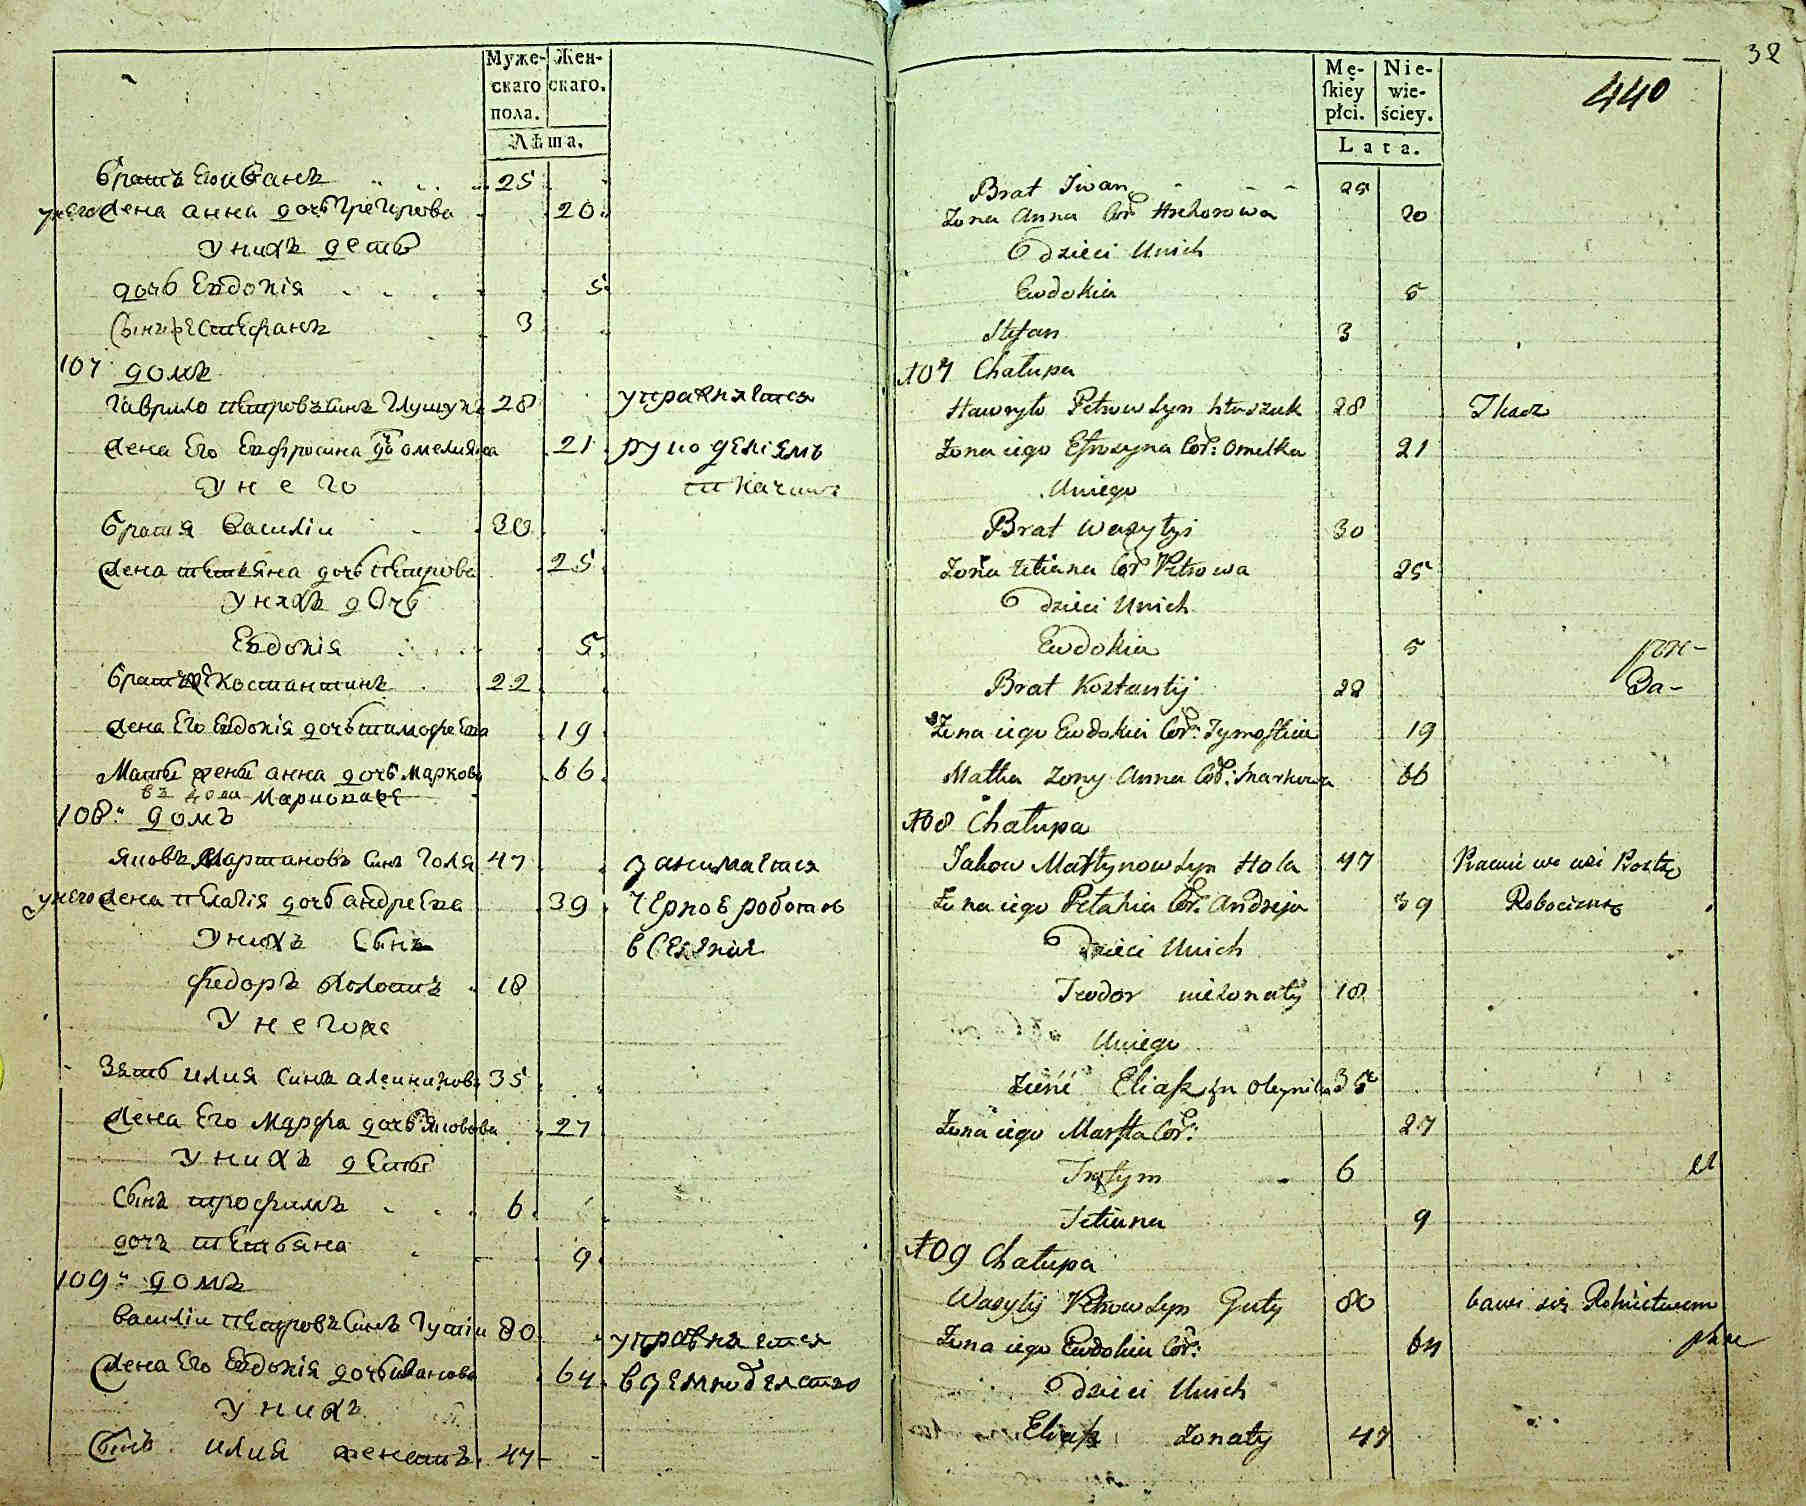 Муже- Жен-
скаго скаго.
пола.
Лѣта.
братъ Его иванъ 25
у него жена анна дочь Григирова 20
У нихъ дети
дочь Евдокія 5
Сынъ Стефанъ 3
107 домъ
Гаврило петровъ синъ Глушукъ 28 управляется
жена Его Евфросина омеляна 21 рукоделіямъ
У него ткачимъ
братъ Василіи 30
жена тетяна дочь петрова 25
У нихъ дочь
Евдокія 5
братъ Костантинъ 22
жена Его Евдокія дочь тимофеева 19
Мать жены анна дочь Маркова 66
108 домъ
яковъ Мартановъ Синъ Голя 47 занимается
у него жена пелагія дочь андреева 39 черно роботою
У нихъ Сынъ в Селянія
федоръ холостъ 18
У него же
Зять илия Синъ алеиниковъ 35
жена Его Марфа дочь яковова 27
У нихъ дети
Сынъ трофимъ 6
дочъ тетяна 9
109 домъ
Василіи петровъ Синъ Гутіи 80 управляется
жена Его Евдокія дочь иванова 64 в земледелство
У нихъ
Сынъ илия женатъ 47
32
Mę- Nie-
ſkiey wie-
płci. ściey.
440
Lata.
Brat Iwan 25
Żona Anna Cór Hrehorowa 20
Dzieci Unich
Ewdokia 5
Stefan 3
107 Chałupa
Hawryło Petrow Syn Hłuszuk 28 Tkacz
Żona iego Efrozyna Cór: Omelka 21
Uniego
Brat Wasylyi 30
Żona Tetiana Cór Petrowa 25
Dzieci Unich
Ewdokia 5
Brat Kostantij 22
Żona iego Ewdokia Cór: Tymofteia 19
Matka Żony Anna Cór: Markowa 66
108 Chałupa
Jakow Martynow Syn Hola 47
Żona iego Pełahia Cór: Andreja 39
Dzieci Unich
Teodor nieżonaty 18
Uniego
Zięć Eliaſz Olejnika 35
Żona iego Marfta Cór: 27
Trofym 6
Tetiana 9
109 Chałupa
Wasylij Petrow Syn Guty 80 bawi się Rolnictwem
Żona iego Ewdokia Cór: 64
Dzieci Unich
Eliaſz Żonaty 47